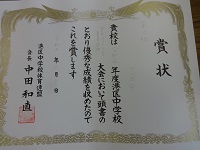 賞状
貴校は 年度港区中学校
大会において頭書の
とおり優秀な成績を収めたので
これを賞します
年 月 日
港区中学校体育連盟
会長 中田和直